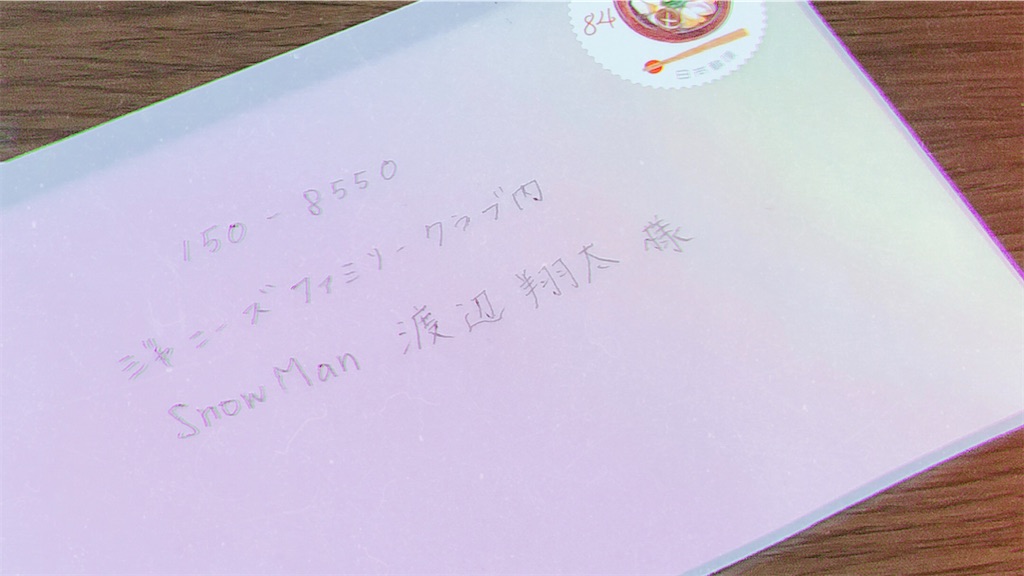 84
日本郵便
150-8550
ジャニーズファミリークラブ内
SnowMan 渡辺 翔太 様